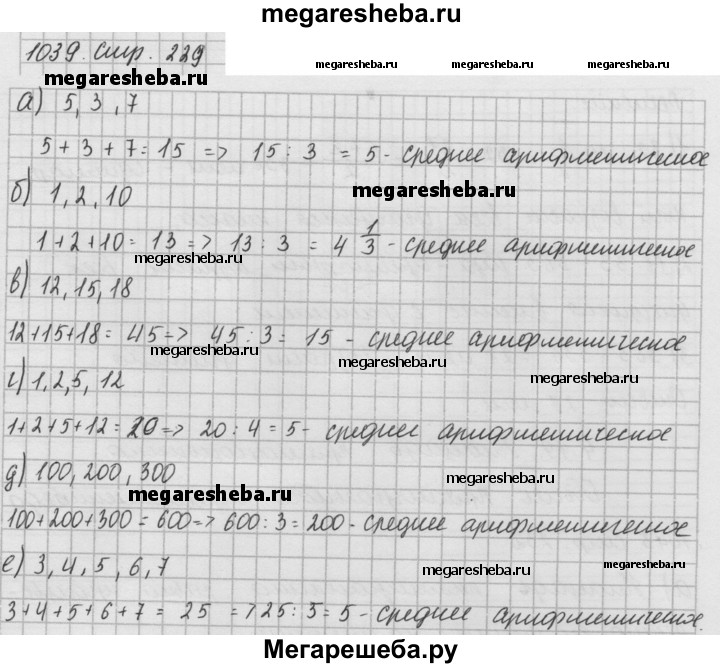 megaresheba.ru
1039. стр. 229
megaresheba.ru megaresheba.ru
megaresheba.ru
а) 5, 3, 7
5 + 3 + 7 = 15 => 15 : 3 = 5 - среднее арифметическое
б) 1, 2, 10
megaresheba.ru
1 + 2 + 10 = 13 => 13 : 3 = 4 1/3 - среднее арифметическое
megaresheba.ru
в) 12, 15, 18
12+15+18 = 45 => 45 : 3 = 15 - среднее арифметическое
megaresheba.ru
megaresheba.ru
г) 1, 2, 5, 12
megaresheba.ru
1+2+5+12 = 20 => 20 : 4 = 5 - среднее арифметическое
д) 100, 200, 300
megaresheba.ru
megaresheba.ru
100+200+300 = 600 => 600 : 3 = 200 - среднее арифметическое
е) 3, 4, 5, 6, 7
megaresheba.ru
megaresheba.ru
3+4+5+6+7 = 25 => 25 : 5 = 5 - среднее арифметическое.
Мегарешеба.ру